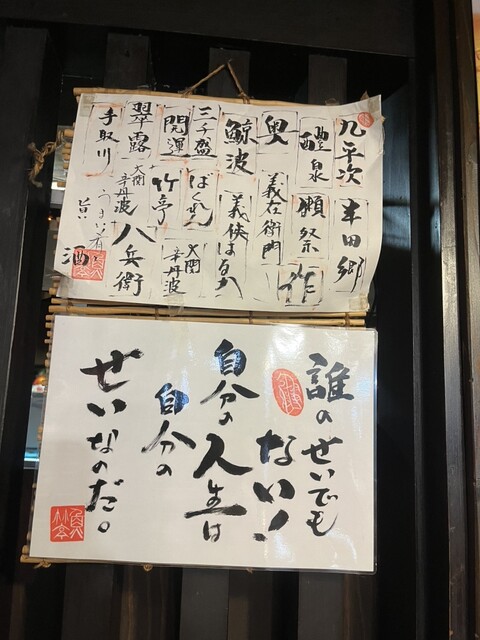 九平次 本田郷
醴泉 願祭 作
奥 義左衛門
鯨波 義侠はるか
三千盛 ばくれん 大関 辛丹波
開運 竹亭
翠露 大関 辛丹波 八兵衛
手取川 うまい肴
旨い 酒
誰のせいでも
ない!
自分の人生は
自分の
せいなのだ。